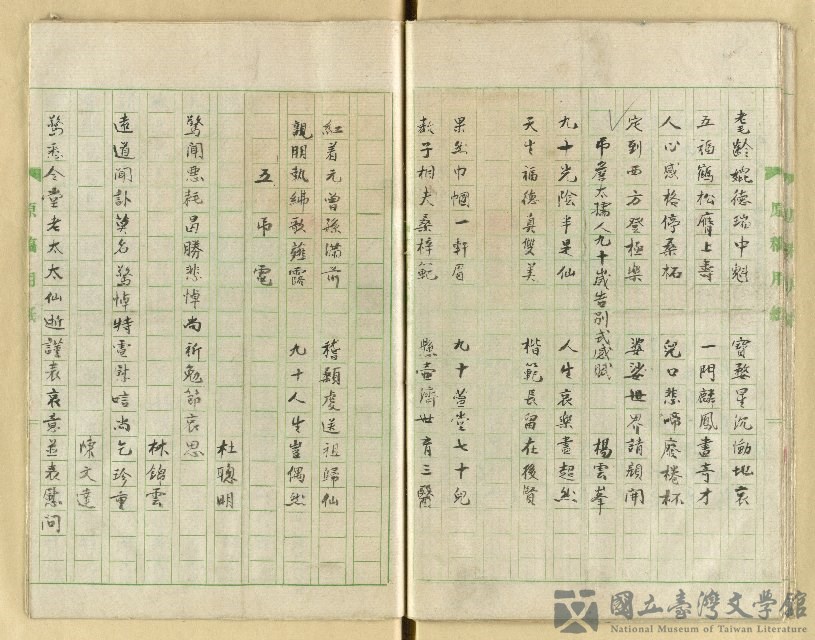 耄齡婗德瑞中魁　寶婺星沉慟地哀
五福鶴松膺上壽　一門麟鳳盡奇才
人心感格停桑柘　兒口悲啼廢棬杯
定到西方登極樂　娑娑世界請顏開
吊詹太孺人九十歲告別式感賦　楊雲萍
九十光陰半是仙　人生哀樂盡超然
天生福德真雙美　楷範長留在後賢
果然巾幗一軒眉　九十萱堂七十兒
教子相夫桑梓範　懸壺濟世育三醫
紅着元曾孫滿前　稽顙虔送祖歸仙
親朋執紼歌薤露　九十人生豈偶然
五　吊電
杜聰明
驚聞惡耗曷勝悲悼尚祈勉節哀思
林銘雲
遠道聞訃莫名驚悼特電致唁尚乞珍重
陳文達
驚悉令堂老太太仙逝謹表哀意並表慰問
原稿用紙
國立臺灣文學館
National Museum of Taiwan Literature